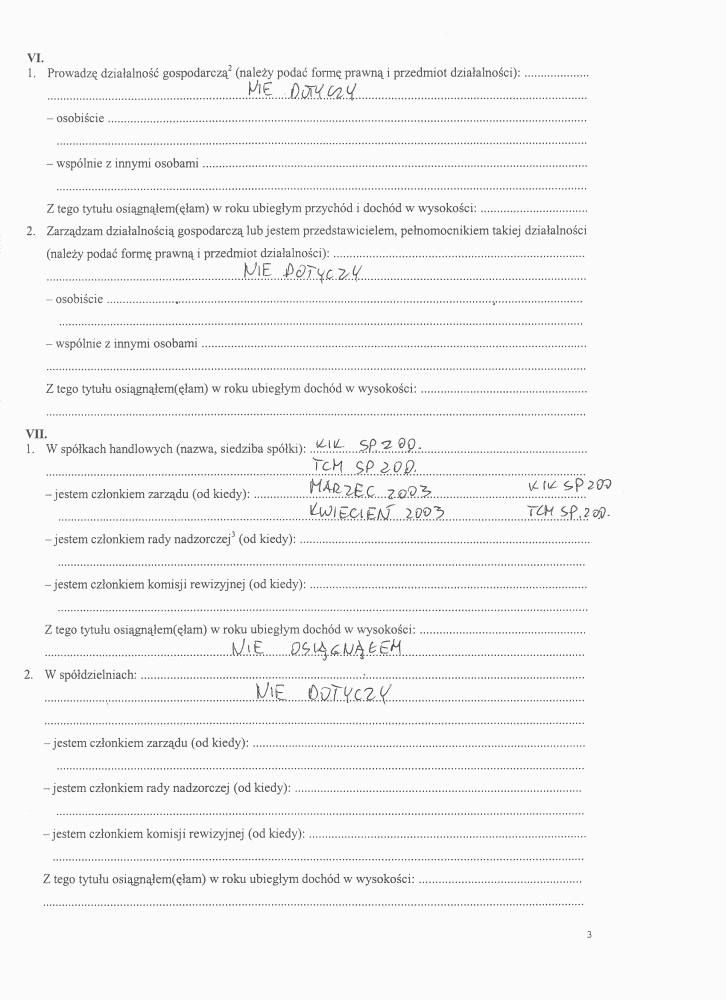 VI.
1. Prowadzę działalność gospodarczą2 (należy podać formę prawną i przedmiot działalności): ....................
NIE DOTYCZY
– osobiście
– wspólnie z innymi osobami
Z tego tytułu osiągnąłem(ęłam) w roku ubiegłym przychód i dochód w wysokości:
2. Zarządzam działalnością gospodarczą lub jestem przedstawicielem, pełnomocnikiem takiej działalności
(należy podać formę prawną i przedmiot działalności):
NIE DOTYCZY
– osobiście
– wspólnie z innymi osobami
Z tego tytułu osiągnąłem(ęłam) w roku ubiegłym dochód w wysokości:
VII.
1. W spółkach handlowych (nazwa, siedziba spółki): KIK SP. Z OO.
TCM SP Z O.O.
– jestem członkiem zarządu (od kiedy): MARZEC 2003 KIK SP ZOO
KWIECIEŃ 2003 TCM SP. Z OO.
– jestem członkiem rady nadzorczej3 (od kiedy):
– jestem członkiem komisji rewizyjnej (od kiedy):
Z tego tytułu osiągnąłem(ęłam) w roku ubiegłym dochód w wysokości:
NIE OSIĄGNĄŁEM
2. W spółdzielniach:
NIE DOTYCZY
– jestem członkiem zarządu (od kiedy):
– jestem członkiem rady nadzorczej (od kiedy):
– jestem członkiem komisji rewizyjnej (od kiedy):
Z tego tytułu osiągnąłem(ęłam) w roku ubiegłym dochód w wysokości:
3